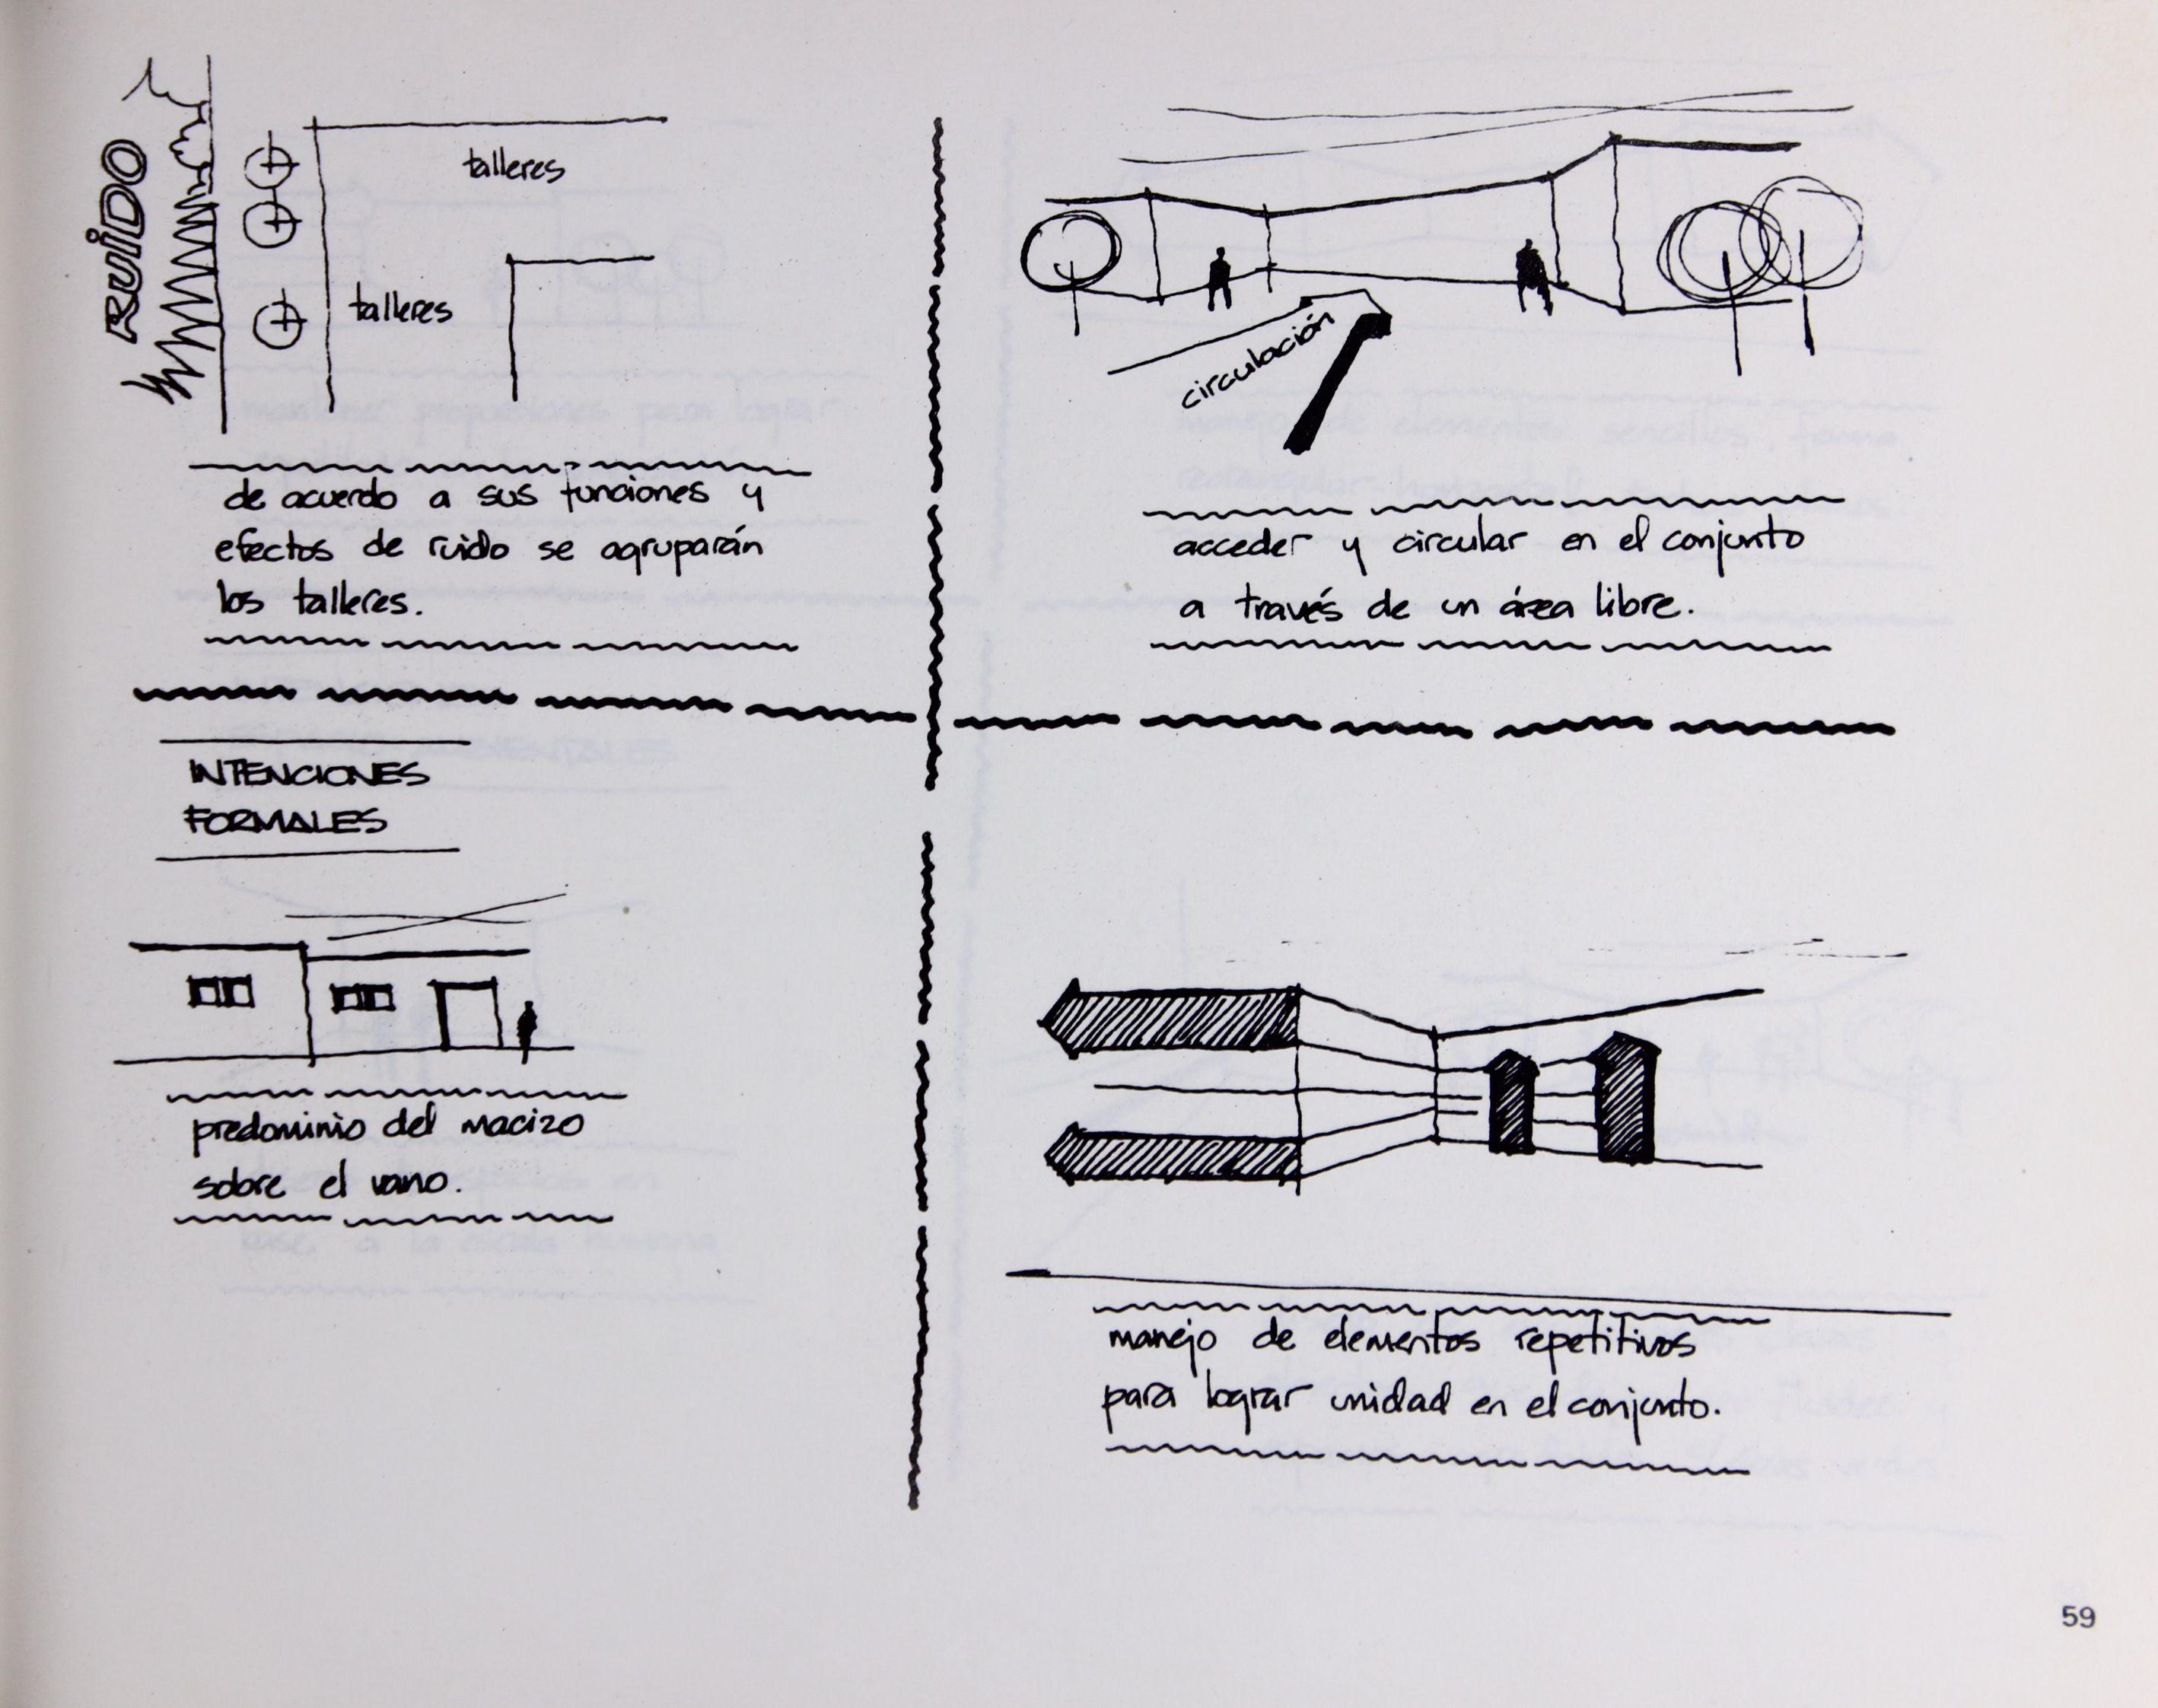 RUIDO
talleres
talleres
de acuerdo a sus funciones y
efectos de ruido se agruparán
los talleres.
circulación
acceder y circular en el conjunto
a través de un área libre.
INTENCIONES
FORMALES
predominio del macizo
sobre el vano.
manejo de elementos repetitivos
para lograr unidad en el conjunto.
59